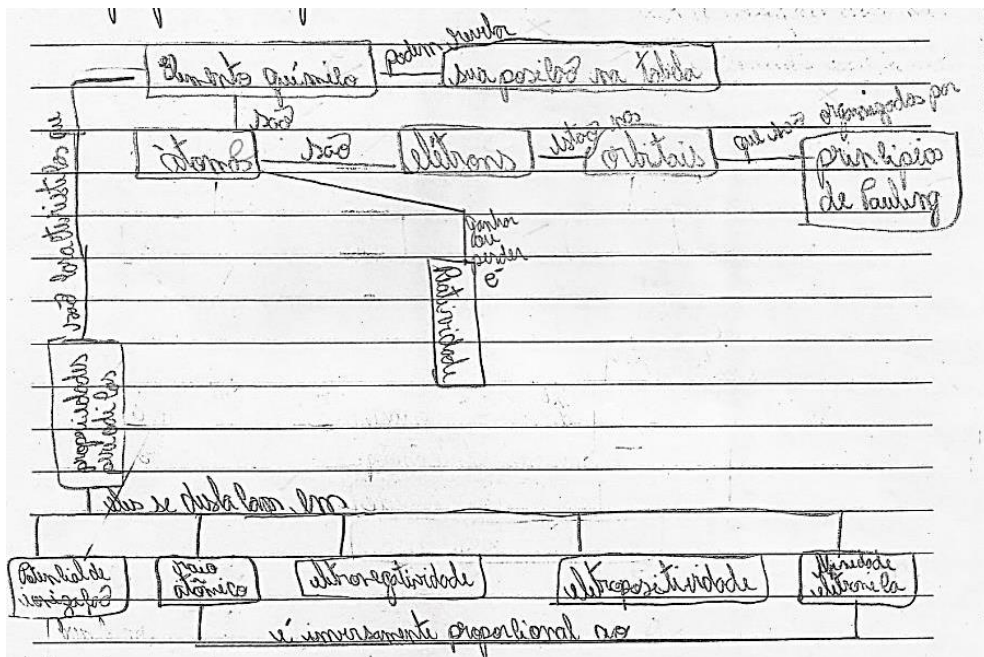 Elemento químico podem revelar sua posição na tabela
são
átomos são elétrons estão em orbitais que são organizados por princípio
de Pauling
são características que
ganhar
ou
perder
é
Reatividade
propriedades
periódicas
que se destacam, em
Potencial de
ionização
raio
atômico
eletronegatividade
eletropositividade
afinidade
eletronica
é inversamente proporcional ao